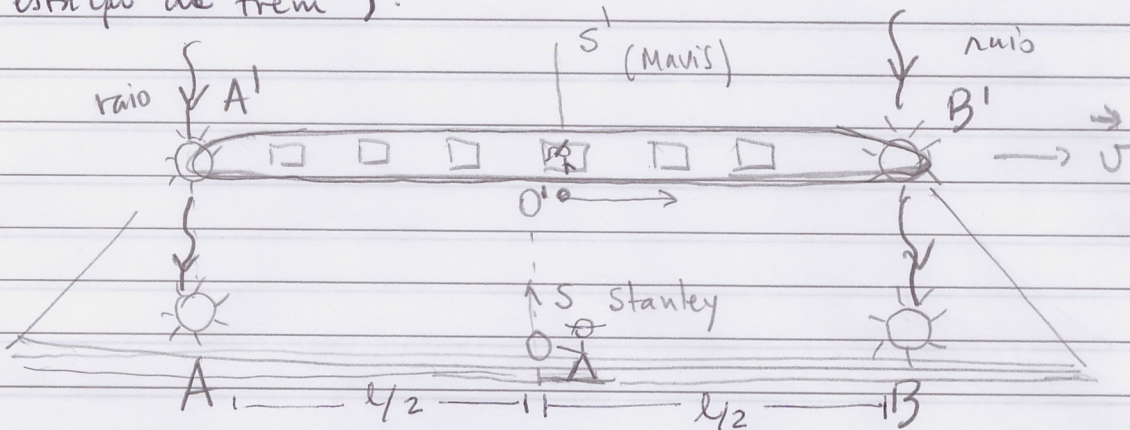 estação de trem ).
S'
(Mavis)
raio
raio A'
B'
v
O'
S Stanley
O
A l/2 l/2 B